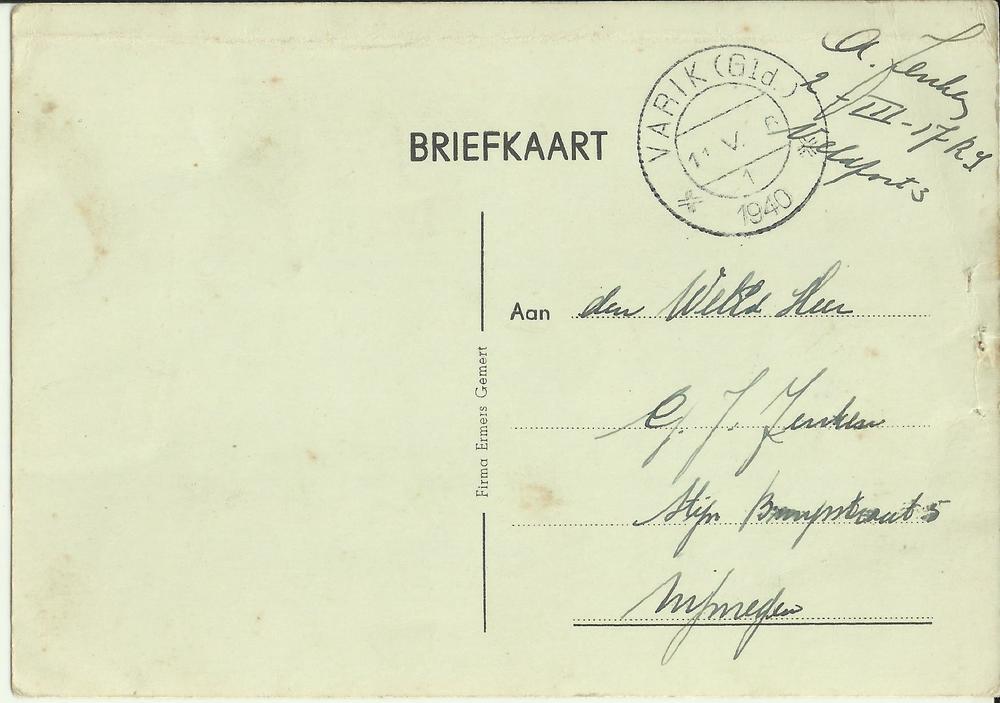 BRIEFKAART
VARIK (Gld.)
11 V.
1
1940
A. Jenken
2-III-17 R.I.
Veldpost 3
Aan den WelEd Heer
G. J. Jenken
Stijn 5
Nijmegen
Firma Ermers Gemert